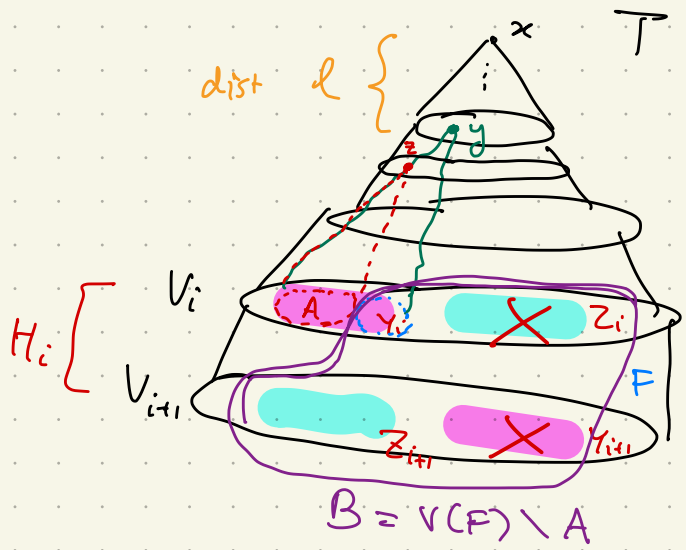 x
T
dist l
y
z
V_i
A
Y_i
Z_i
H_i
F
V_{i+1}
Z_{i+1}
Y_{i+1}
B = V(F) \ A